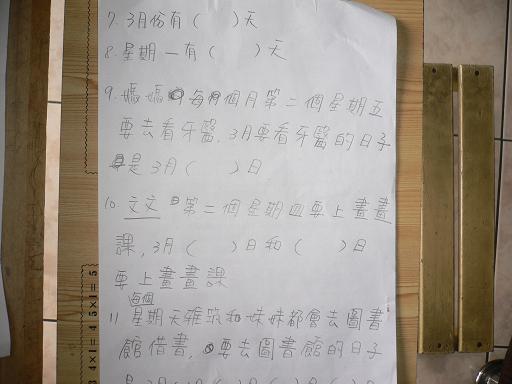 7. 3月份有(   )天
8. 星期一有(   )天
9. 媽媽每個月第二個星期五
要去看牙醫,3月要看牙醫的日子
是3月(   )日
10. 文文 第二個星期四要上畫畫
課,3月(   )日和(   )日
要上畫畫課
每個
11 星期天雅筑和妹妹都會去圖書
館借書,要去圖書館的日子
4×1=4 5×1=5